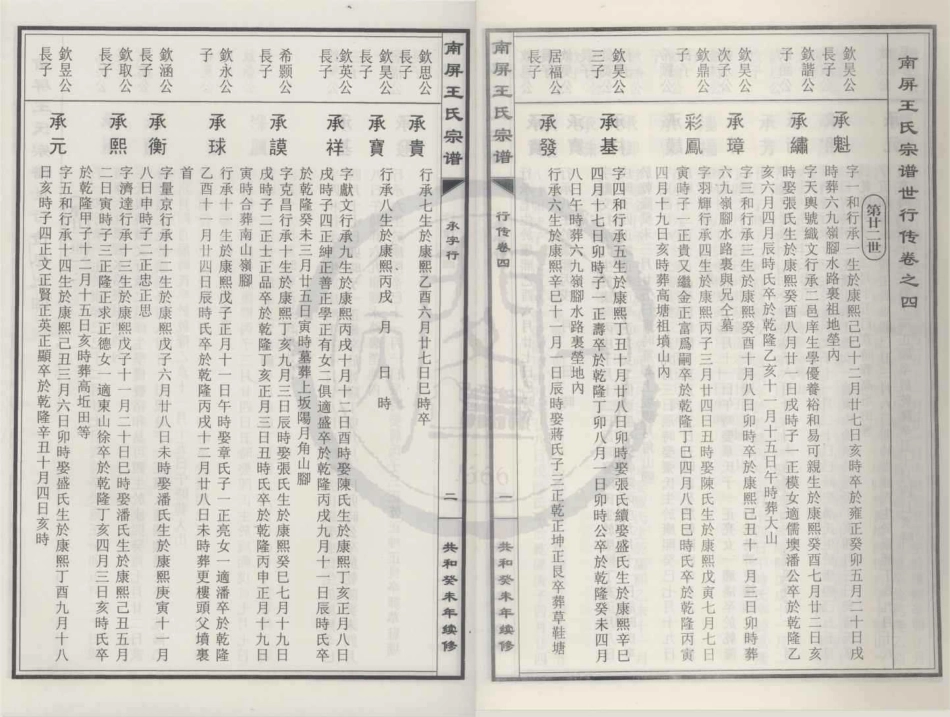 南屏王氏宗谱世行传卷之四
第廿二世
欽昊公
長子
承魁
字一和行承一生於康熙己巳十二月廿七日亥時卒於雍正癸卯五月二十日戌
時葬六九嶺腳水路裏祖地塋內
欽諧公
子
承繡
字天輿號織文行承二邑庠生學優養裕和易可親生於康熙癸酉七月廿二日亥
時娶張氏生於康熙癸酉八月廿一日戌時子一正模女適儒墺潘公卒於乾隆乙
亥六月四月辰時氏卒於乾隆乙亥十一月十五日午時葬大山
欽昊公
次子
承璋
字三和行承三生於康熙癸酉十月八日卯時卒於康熙己丑十一月三日卯時葬
六九嶺腳水路裏與兄仝墓
欽鼎公
子
彩鳳
字羽輝行承四生於康熙丙子三月廿四日丑時娶陳氏生於康熙戊寅七月七日
寅時子一正貴又繼金正富爲嗣卒於乾隆丁巳四月八日巳時氏卒於乾隆丙寅
四月十九日亥時葬高塘祖墳山內
欽昊公
三子
承基
字四和行承五生於康熙丁丑十月廿八日卯時娶張氏續娶盛氏生於康熙辛巳
四月十七日卯時子一正壽卒於乾隆丁卯八月一日卯時公卒於乾隆癸未四月
八日午時葬六九嶺腳水路裏塋地內
居福公
長子
承發
行承六生於康熙辛巳十一月一日辰時娶蔣氏子三正乾正坤正艮卒葬草鞋塘
南屏王氏宗谱
行传卷四
一
共和癸未年续修
南屏王氏宗谱
永字行
二
共和癸未年续修
欽思公
長子
承貴
行承七生於康熙乙酉六月廿七日巳時卒
欽昊公
長子
承寶
行承八生於康熙丙戌 月 日 時
欽英公
長子
承祥
字獻文行承九生於康熙丙戌十月十二日酉時娶陳氏生於康熙丁亥正月八日
戌時子四正紳正善正學正有女二俱適盛卒於乾隆丙戌九月十一日辰時氏卒
於乾隆癸未三月廿五日寅時墓葬上坂陽月角山腳
希颢公
長子
承謨
字克昌行承十生於康熙丁亥九月三日辰時娶張氏生於康熙癸巳七月十九日
戌時子二正士正品卒於乾隆丁亥正月三日丑時氏卒於乾隆丙申正月十九日
寅時合葬南山嶺腳
欽永公
子
承球
行承十一生於康熙戊子正月十一日午時娶章氏子一正亮女一適潘卒於乾隆
乙酉十一月廿四日辰時氏卒於乾隆丙戌十二月廿八日未時葬更樓頭父墳裏
首
欽涵公
長子
承衡
字量京行承十二生於康熙戊子六月廿八日未時娶潘氏生於康熙庚寅十一月
八日申時子二正忠正思
欽取公
長子
承熙
字濟達行承十三生於康熙戊子十一月二十日巳時娶潘氏生於康熙己丑五月
二日寅時子三正隆正求正德女一適東山徐卒於乾隆丁亥四月三日亥時氏卒
於乾隆甲子十二月十五日亥時葬高坵田等
欽昱公
長子
承元
字五和行承十四生於康熙己丑三月六日卯時娶盛氏生於康熙丁酉九月十八
日亥時子四正文正賢正英正顯卒於乾隆辛丑十月四日亥時